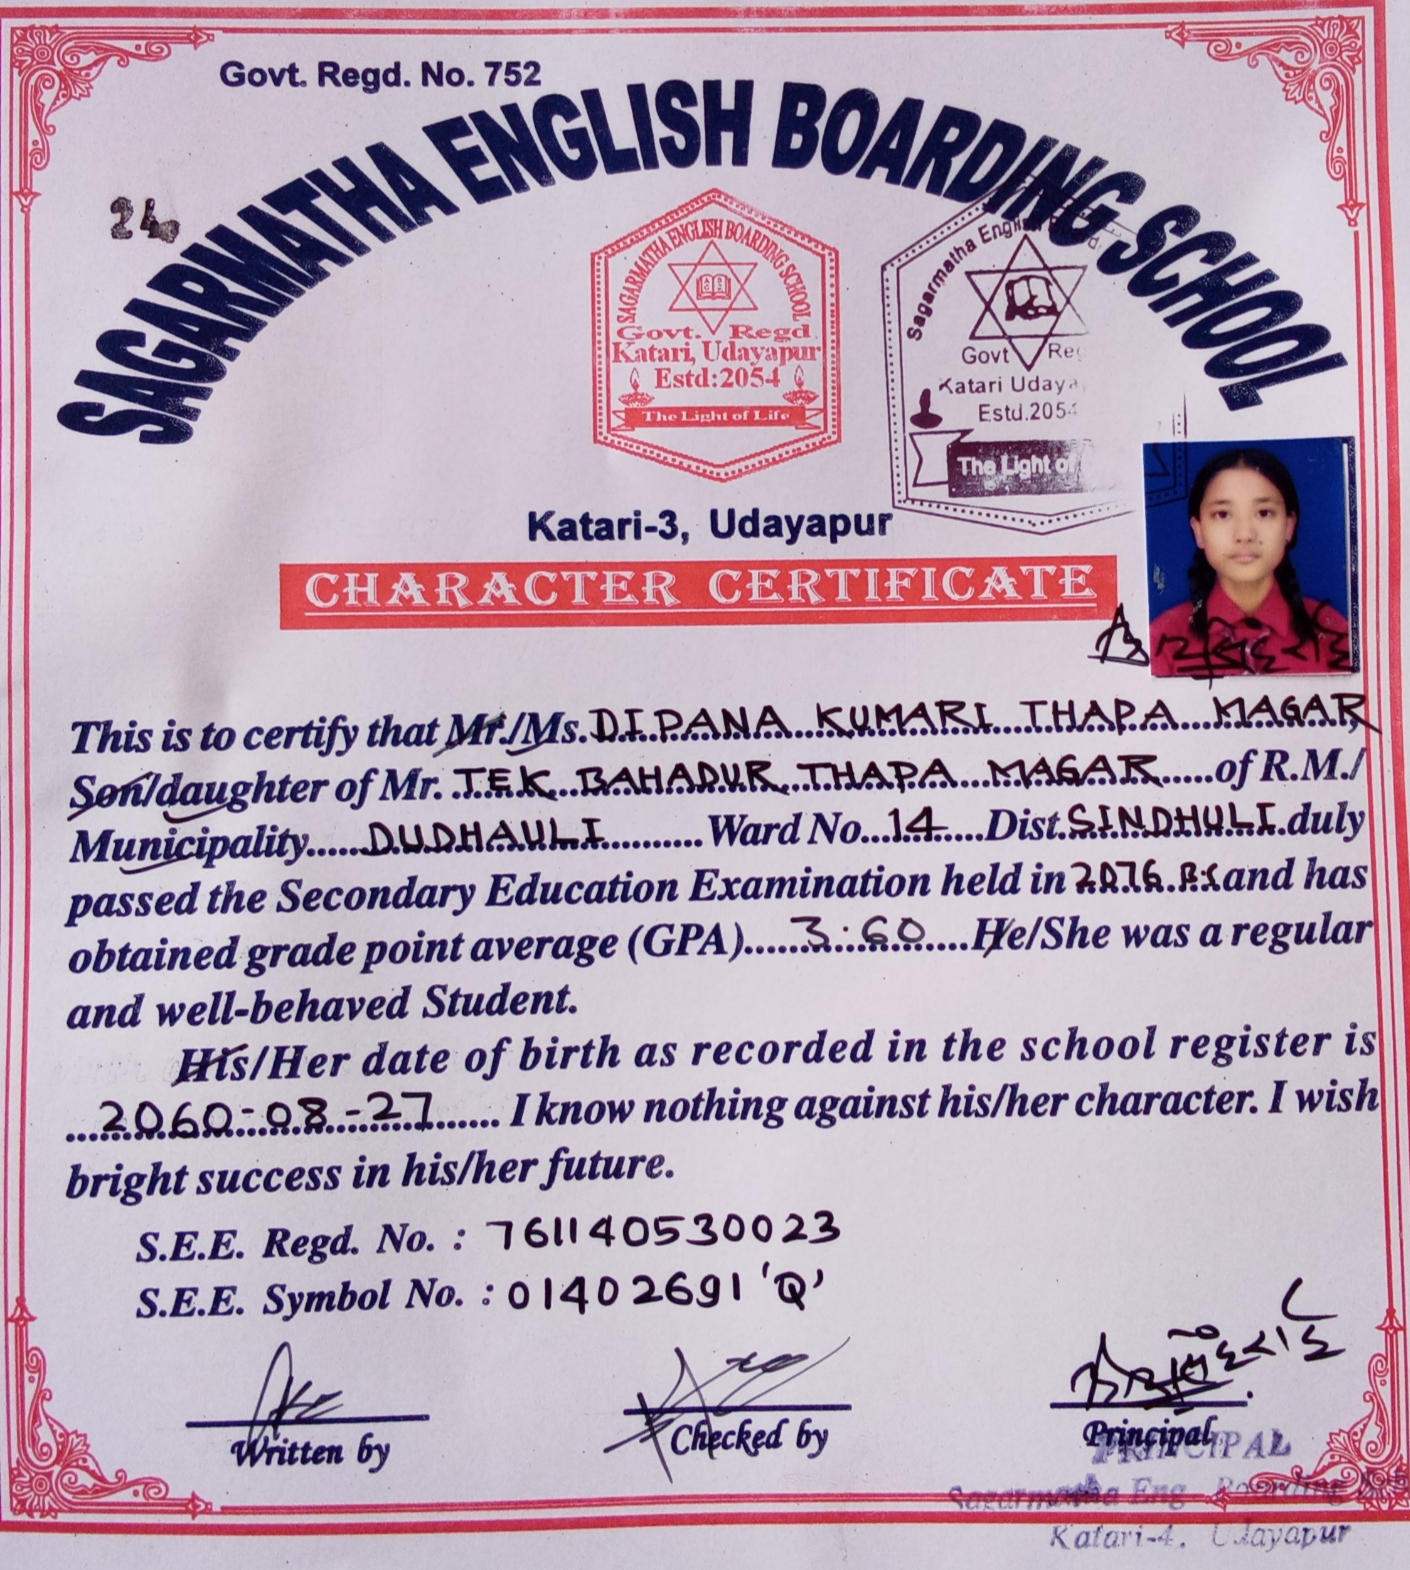 Govt. Regd. No. 752
SAGARMATHA ENGLISH BOARDING SCHOOL
24
SAGARMATHA ENGLISH BOARDING SCHOOL
Govt. Regd.
Katari, Udayapur
Estd:2054
The Light of Life
Sagarmatha English
Govt Reg
Katari Udaya
Estd.205
The Light of
Katari-3, Udayapur
CHARACTER CERTIFICATE
This is to certify that Mr./Ms. DIPANA KUMARI THAPA MAGAR,
Son/daughter of Mr. TEK BAHADUR THAPA MAGAR of R.M./
Municipality DUDHAULI Ward No. 14 Dist. SINDHULI duly
passed the Secondary Education Examination held in 2076 B.S and has
obtained grade point average (GPA) 3.60 He/She was a regular
and well-behaved Student.
His/Her date of birth as recorded in the school register is
2060-08-27 I know nothing against his/her character. I wish
bright success in his/her future.
S.E.E. Regd. No. : 761140530023
S.E.E. Symbol No. : 01402691 'Q'
Written by
Checked by
Principal
PRINCIPAL
Sagarmatha Eng. Boarding
Katari-4, Udayapur